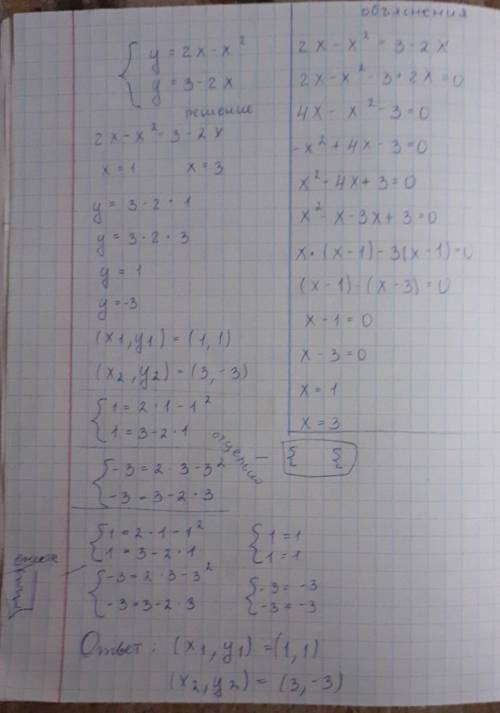 { y = 2x - x²
y = 3 - 2x
решение
2x - x² = 3 - 2x
x = 1 x = 3
y = 3 - 2 · 1
y = 3 - 2 · 3
y = 1
y = -3
(x₁, y₁) = (1, 1)
(x₂, y₂) = (3, -3)
{ 1 = 2 · 1 - 1²
1 = 3 - 2 · 1
{ -3 = 2 · 3 - 3²
-3 = 3 - 2 · 3
{ 1 = 2 · 1 - 1² { 1 = 1
1 = 3 - 2 · 1 1 = 1
{ -3 = 2 · 3 - 3² { -3 = -3
-3 = 3 - 2 · 3 -3 = -3
Ответ: (x₁, y₁) = (1, 1)
(x₂, y₂) = (3, -3)
объяснения
2x - x² = 3 - 2x
2x - x² - 3 + 2x = 0
4x - x² - 3 = 0
-x² + 4x - 3 = 0
x² - 4x + 3 = 0
x² - x - 3x + 3 = 0
x · (x - 1) - 3(x - 1) = 0
(x - 1) · (x - 3) = 0
x - 1 = 0
x - 3 = 0
x = 1
x = 3
{ {